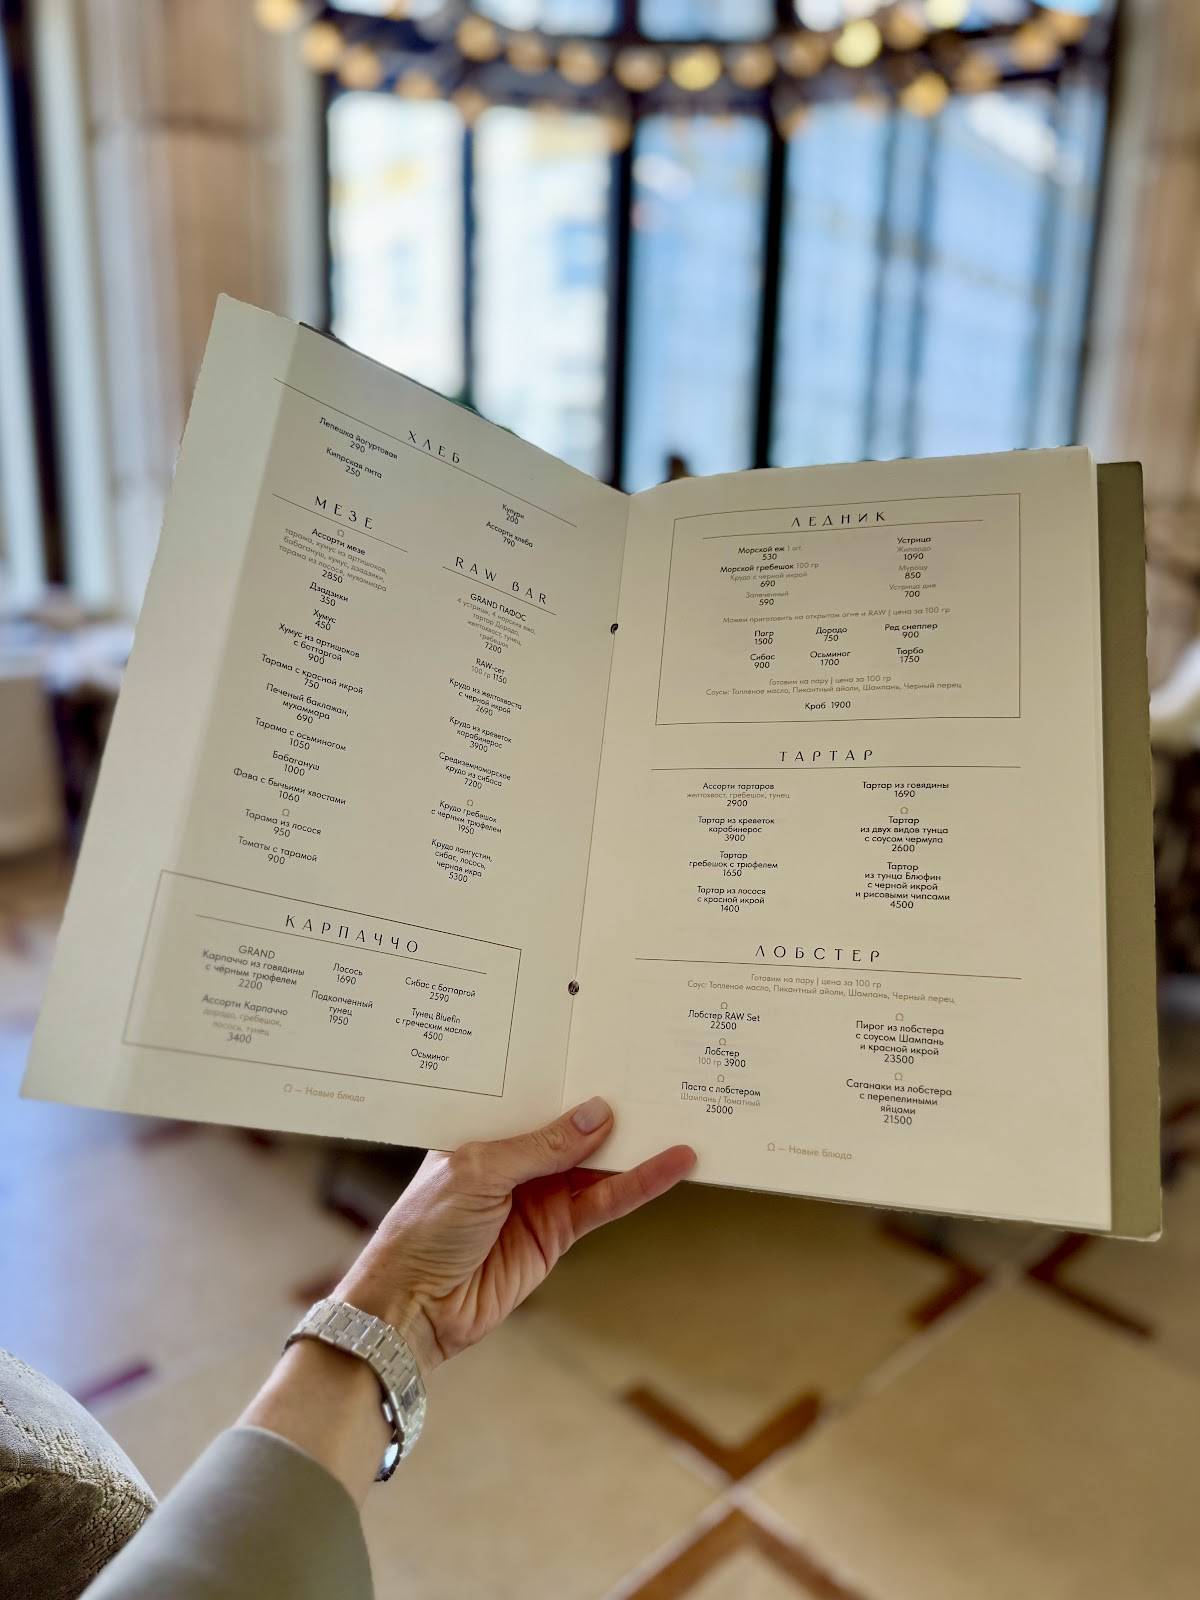 ХЛЕБ
Лепешка йогуртовая
290
Кипрская пита
250
Кулури
200
Ассорти хлеба
790
МЕЗЕ
Ω
Ассорти мезе
тарама, хумус из артишоков,
бабагануш, хумус, дзадзики,
тарама из лосося, мухаммара
2850
Дзадзики
350
Хумус
450
Хумус из артишоков
с боттаргой
900
Тарама с красной икрой
750
Печеный баклажан,
мухаммара
690
Тарама с осьминогом
1050
Бабагануш
1000
Фава с бычьими хвостами
1060
Ω
Тарама из лосося
950
Томаты с тарамой
900
RAW BAR
GRAND ПАФОС
4 устрицы, 4 морских ежа,
тартар Дорадо,
желтохвост, тунец,
гребешок
7200
RAW-сет
100 гр 1150
Крудо из желтохвоста
с черной икрой
2690
Крудо из креветок
карабинерос
3900
Средиземноморское
крудо из сибаса
7200
Ω
Крудо гребешок
с черным трюфелем
1950
Крудо лангустин,
сибас, лосось,
черная икра
5300
КАРПАЧЧО
GRAND
Карпаччо из говядины
с чёрным трюфелем
2200
Ассорти Карпаччо
дорадо, гребешок,
лосось, тунец
3400
Лосось
1690
Подкопченный
тунец
1950
Сибас с боттаргой
2590
Тунец Bluefin
с греческим маслом
4500
Осьминог
2190
Ω — Новые блюда
ЛЕДНИК
Морской еж 1 шт.
530
Морской гребешок 100 гр
Крудо с черной икрой
690
Запеченный
590
Устрица
Жилардо
1090
Мурошу
850
Устрица дня
700
Можем приготовить на открытом огне и RAW | цена за 100 гр
Пагр
1500
Дорадо
750
Ред снеппер
900
Сибас
900
Осьминог
1700
Тюрбо
1750
Готовим на пару | цена за 100 гр
Соусы: Топленое масло, Пикантный айоли, Шампань, Черный перец
Краб 1900
ТАРТАР
Ассорти тартаров
желтохвост, гребешок, тунец
2900
Тартар из креветок
карабинерос
3900
Тартар
гребешок с трюфелем
1650
Тартар из лосося
с красной икрой
1400
Тартар из говядины
1690
Ω
Тартар
из двух видов тунца
с соусом чермула
2600
Тартар
из тунца Блюфин
с черной икрой
и рисовыми чипсами
4500
ЛОБСТЕР
Готовим на пару | цена за 100 гр
Соус: Топленое масло, Пикантный айоли, Шампань, Черный перец
Ω
Лобстер RAW Set
22500
Ω
Лобстер
100 гр 3900
Ω
Паста с лобстером
Шампань / Томатный
25000
Ω
Пирог из лобстера
с соусом Шампань
и красной икрой
23500
Ω
Саганаки из лобстера
с перепелиными
яйцами
21500
Ω — Новые блюда